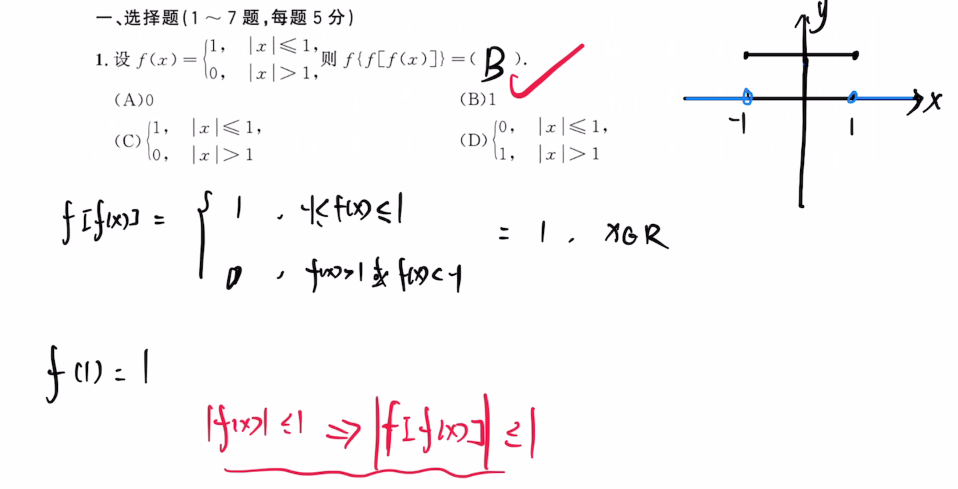 一、选择题(1～7题,每题5分)
1.设 f(x)={1, |x|≤1, 0, |x|>1, 则 f{f[f(x)]}=( B ).
(A)0 (B)1
(C){1, |x|≤1, 0, |x|>1 (D){0, |x|≤1, 1, |x|>1
y
x
-1 1
f[f(x)] = {1, -1≤f(x)≤1 0, f(x)>1 或 f(x)<-1 = 1, x∈R
f(1) = 1
|f(x)| ≤1 ⇒ |f[f(x)]| ≤1